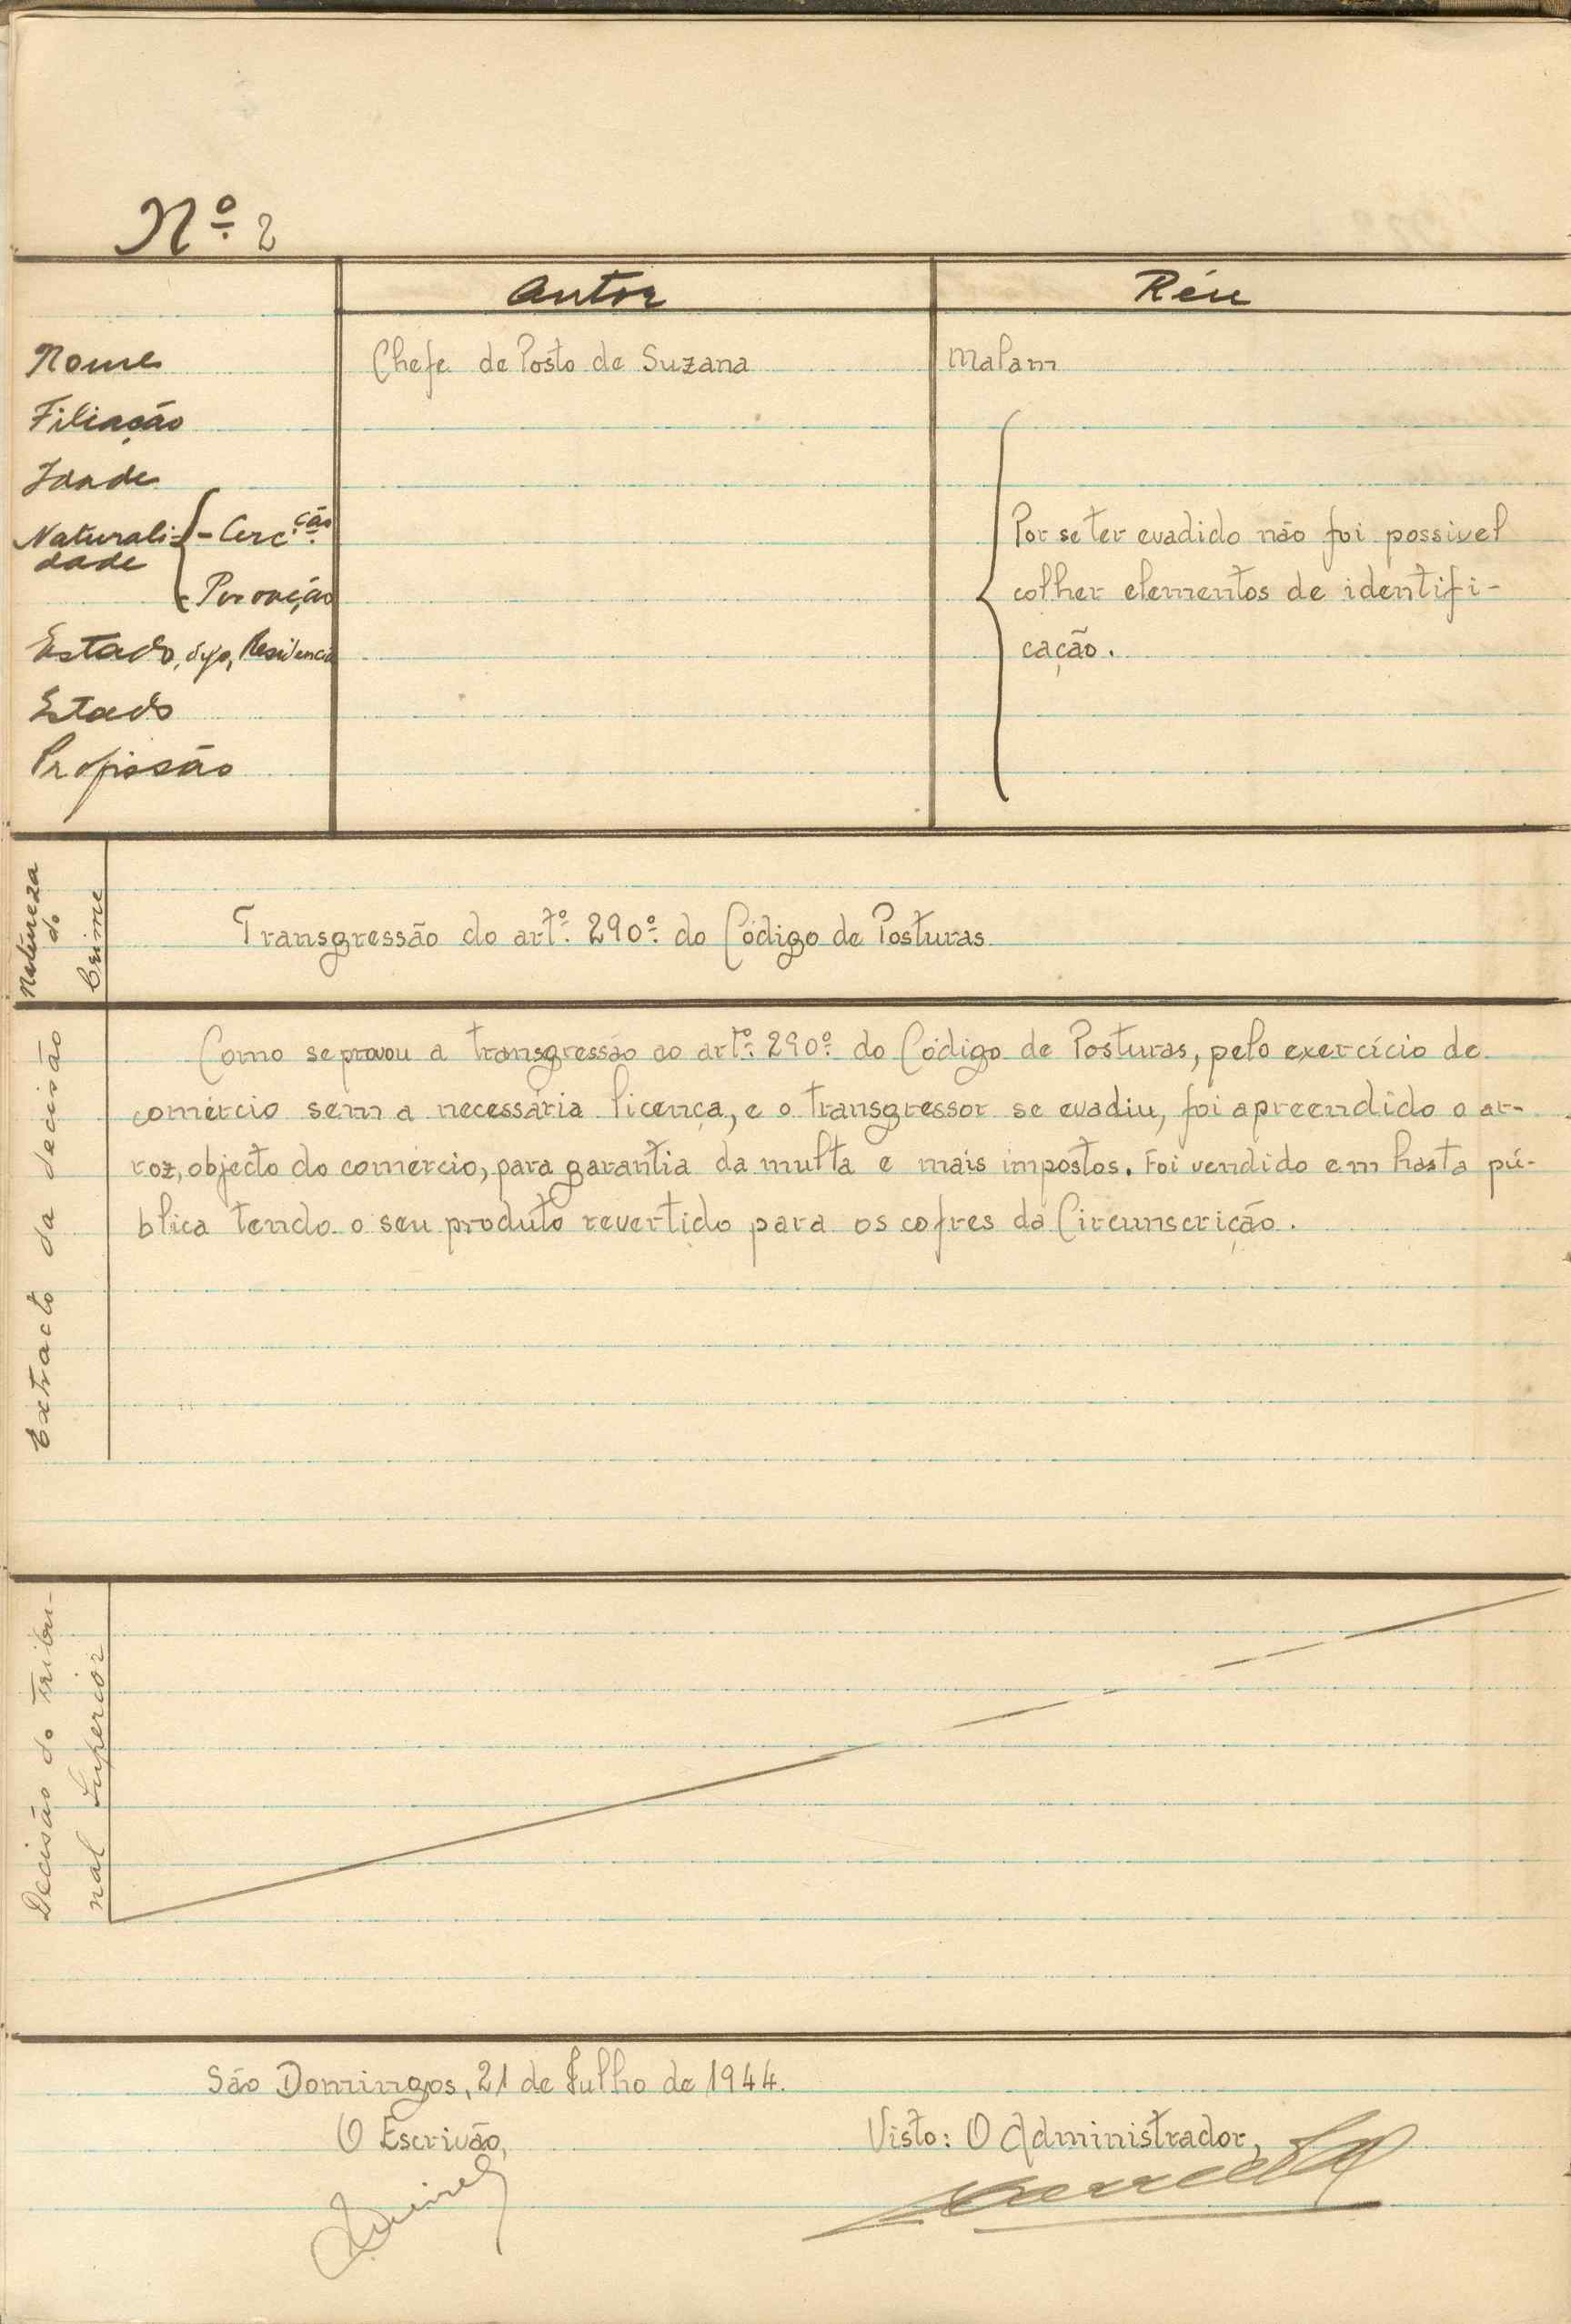 Nº 2
Autor
Réu
Nome
Chefe de Posto de Suzana
Malam
Filiação
Idade
Naturali-
dade
- Circ.ção
- Povoação
Por se ter evadido não foi possivel
colher elementos de identifi-
cação.
Estado, Residencia
Estado
Profissão
Natureza
do
Crime
Transgressão do artº. 290º. do Código de Posturas
Extracto da decisão
Como se provou a transgressão ao artº. 290º. do Código de Posturas, pelo exercício de
comércio sem a necessária licença, e o transgressor se evadiu, foi apreendido o ar-
roz, objecto do comércio, para garantia da multa e mais impostos. Foi vendido em hasta pú-
blica tendo o seu produto revertido para os cofres da Circunscrição.
Decisão do Tribu-
nal Superior
São Domingos, 21 de Julho de 1944.
O Escrivão,
Visto: O Administrador,